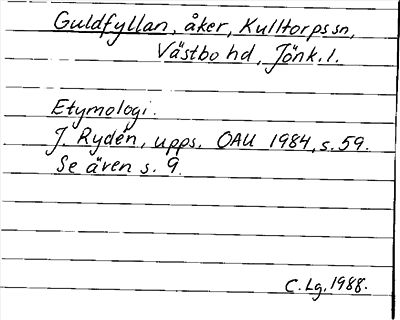 Guldfyllan, åker, Kulltorps sn,
Västbo hd, Jönk. l.
Etymologi.
J. Rydén, upps. OAU 1984, s. 59.
Se även s. 9.
C. Lg. 1988.